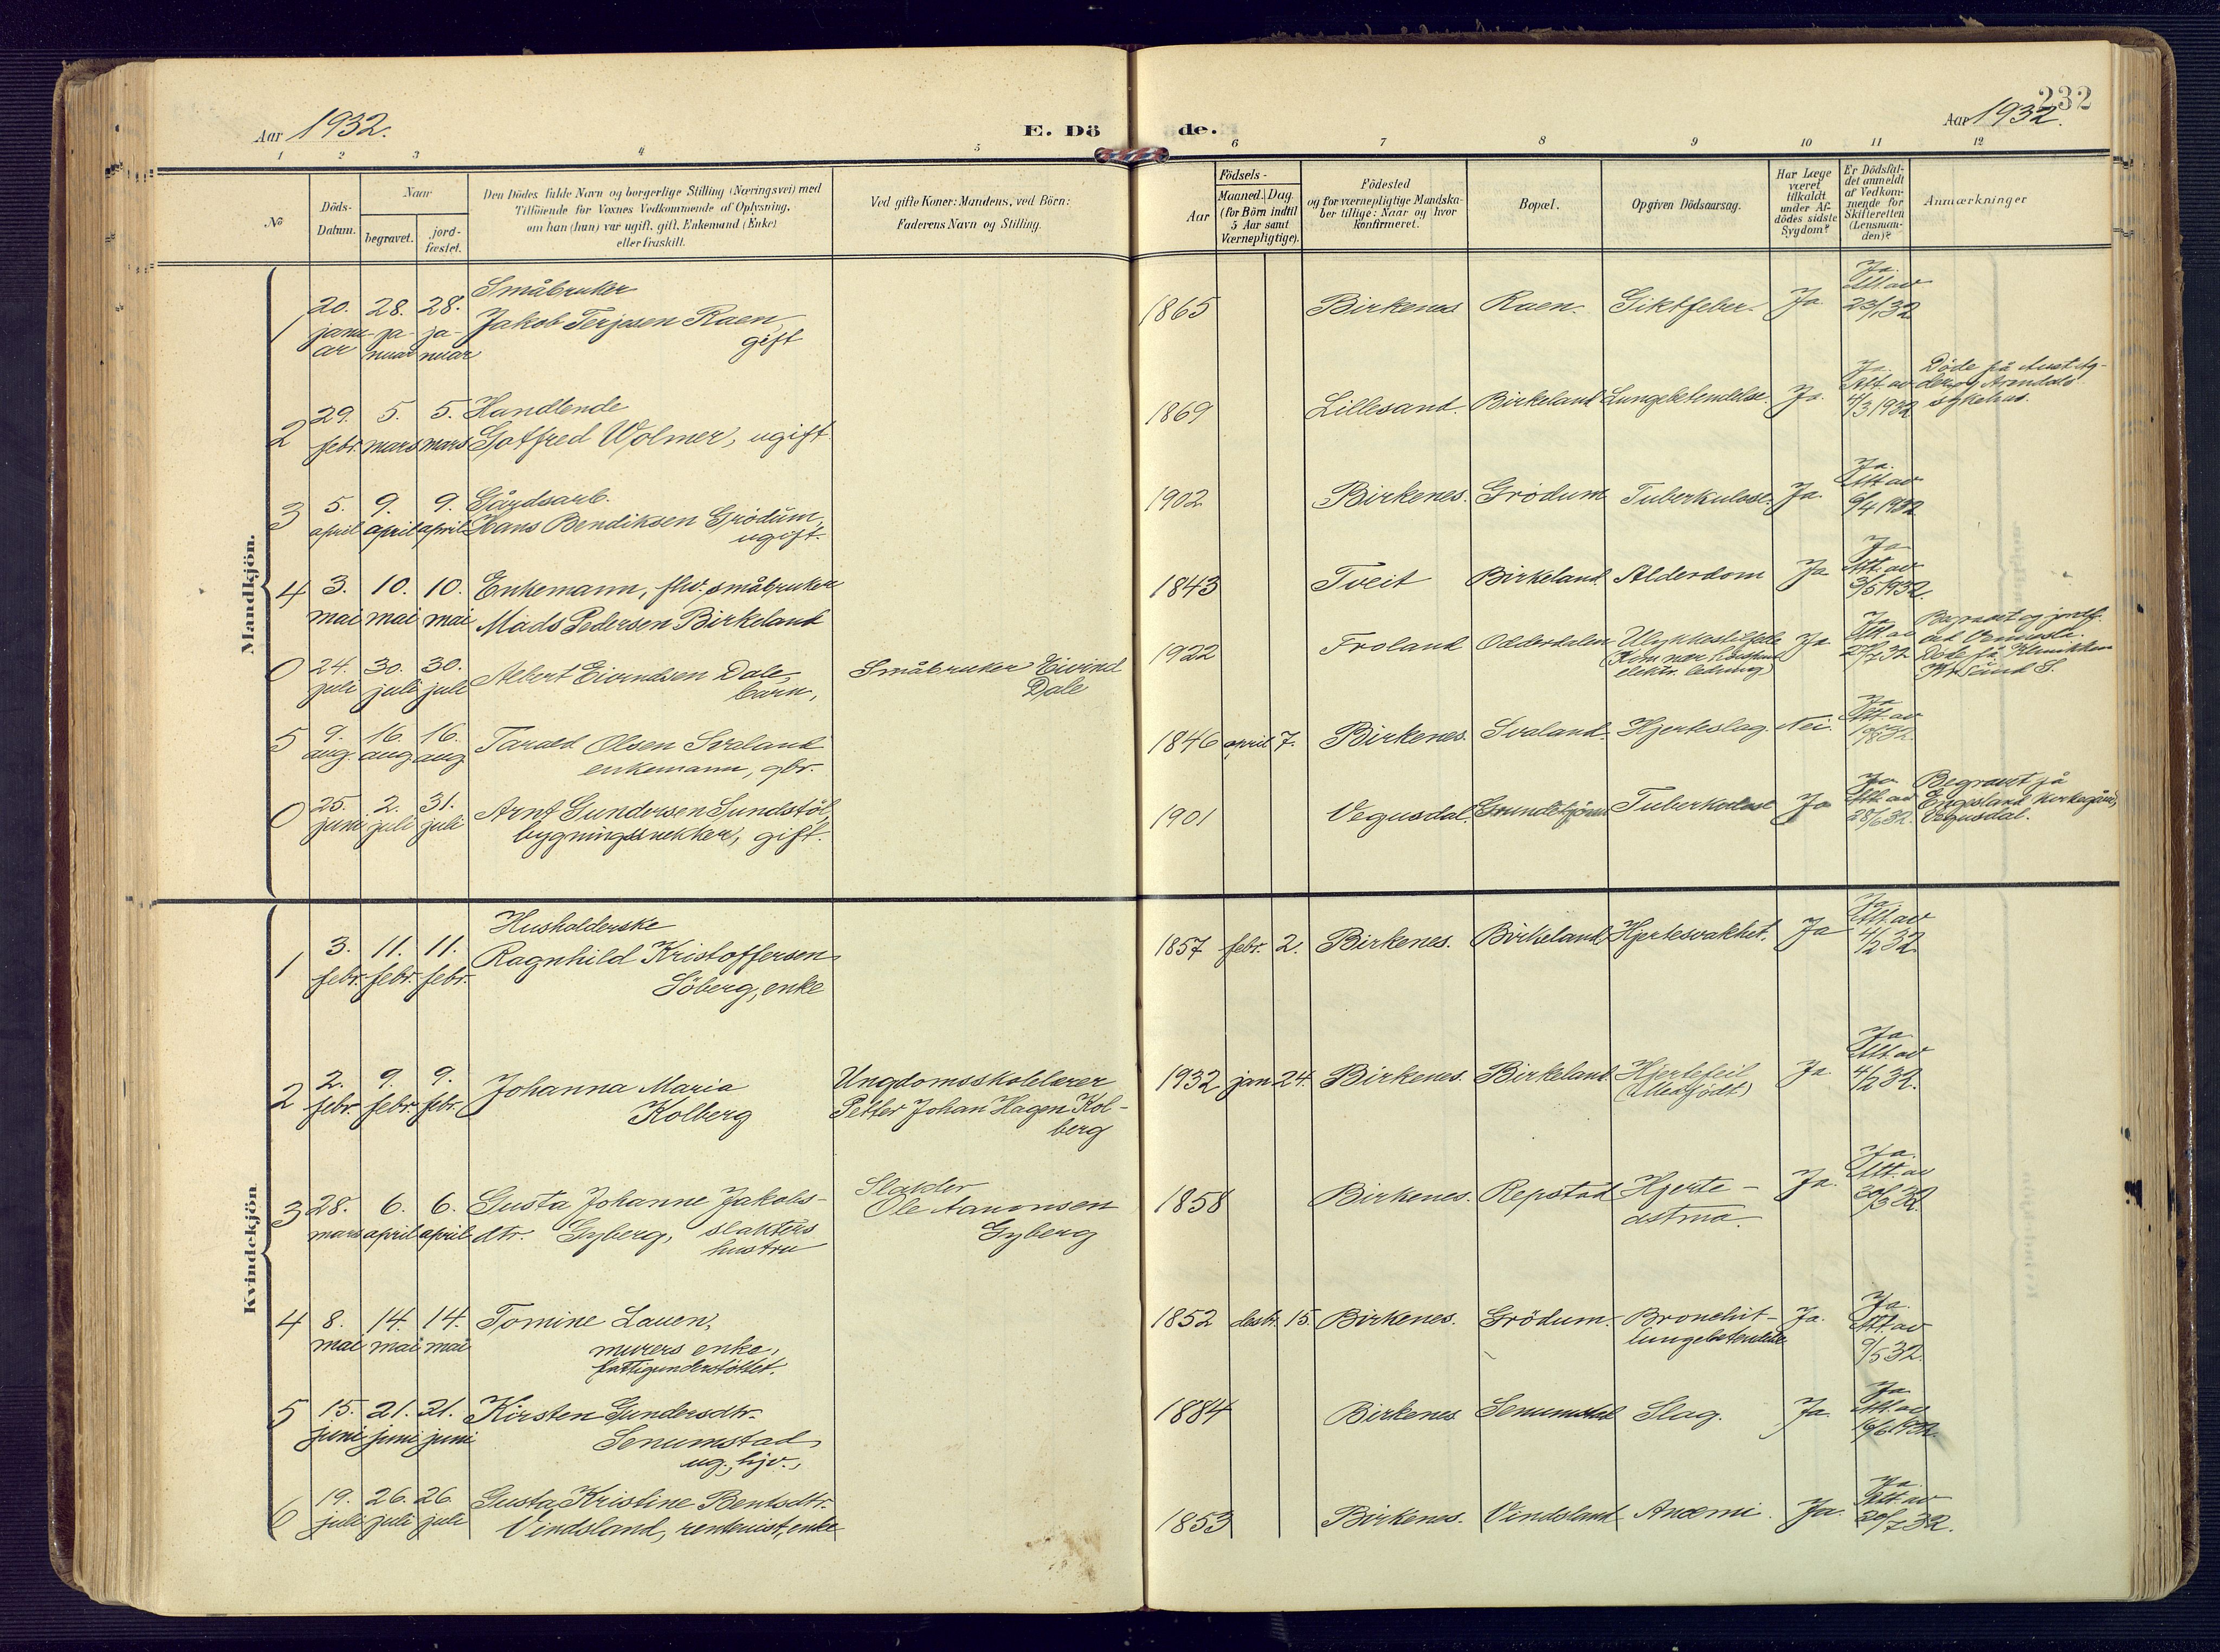 Aar 1932.
E. Döde.
232
Aar 1932.
1 2 3 4 5 6 7 8 9 10 11 12
No
Döds-
Datum.
Naar
begravet.
jord-
fæstet.
Den Dödes fulde Navn og borgerlige Stilling (Næringsvei) med
Tilföiende for Voxnes Vedkommende af Oplysning,
om han (hun) var ugift, gift, Enkemand (Enke)
eller fraskilt.
Ved gifte Koner: Mandens, ved Börn:
Faderens Navn og Stilling.
Födsels-
Aar
Maaned. Dag.
(for Börn indtil
5 Aar samt
Værnepligtige).
Födested
og for værnepligtige Mandska-
ber tillige: Naar og hvor
konfirmeret.
Bopæl.
Opgiven Dödsaarsag.
Har Læge
været
tilkaldt
under Af-
dödes sidste
Sygdom?
Er Dödsfal-
det anmeldt
af Vedkom-
mende for
Skifteretten
(Lensman-
den)?
Anmærkninger
Mandkjön.
1 20. janu-ar 28. ja-nuar 28. ja-nuar Småbruker
Jakob Terjesen Raen,
gift
1865 Birkenes Raen. Giktfeber. Ja. Ja. Att av 23/1 32
2 29. febr. 5. mars 5. mars Handlende
Gotfred Wolmer, ugift
1869 Lillesand. Birkeland Lungebetendelse. Ja. Ja. Att. av 4/3 1932
Döde på Aust Ag-
der og Arendals
sykehus.
3 5. april 9. april 9. april Gårdsarb.
Hans Bendiksen Grödum,
ugift.
1902 Birkenes. Grödum Tuberkulose. Ja. Ja. Att av 6/4 1932
4 3. mai 10. mai 10. mai Enkemann, fhv. småbruker
Mads Pedersen Birkeland
1843 Tveit Birkeland Alderdom Ja Ja Att. av 3/5 1932.
0 24. juli 30. juli 30. juli Albert Eivindsen Dale,
barn,
Småbruker Eivind
Dale
1922 Froland Oddersdalen Ulykkestilfelle
(Kom nær
elektr. ledning)
Ja Ja Att. av
Begravet og jordf.
ved
Döde på Klinikken
Kr.sand S.
5 9. aug. 16. aug 16. aug Tarald Olsen Svaland
enkemann, gbr.
1846 april 7. Birkenes. Svaland. Hjerteslag. Nei. Ja Att. av
0 25. juni 2. juli 31. juli Arnt Gundersen Sundstöl,
bygningssnekker, gift.
1901 Vegusdal. Tuberkulose Ja Ja Att av 28/6 32.
Begravet på
Engesland kirkegård,
Vegusdal.
Kvindekjön
1 3. febr. 11. febr. 11. febr. Husholderske
Ragnhild Kristoffersen
Söberg, enke
1857 febr. 2. Birkenes. Birkeland Hjertesvakhet. Ja Ja. Att. av 4/2 32
2 2. febr. 9. febr. 9. febr. Johanna Maria
Kolberg
Ungdomsskolelærer
Petter Johan Hagen Kol-
berg
1932 jan 24. Birkenes. Birkeland. Hjertefeil
(Medfödt)
Ja. Ja Att. av 4/2 32.
3 28. mars 6. april 6. april Gusta Johanne Jakobs-
dtr. Gyberg, slakters
hustru
Slakter
Ole Aanonsen
Gyberg
1858 Birkenes. Repstad Hjerte-
astma.
Ja. Ja. Att. av 30/3 32.
4 8. mai 14. mai 14. mai Tomine Lauen,
murers enke,
fattigunderstöttet.
1852 desbr. 15. Birkenes. Grödum. Bronchit-
lungebetendelse
Ja. Ja. Att. av 9/5 32.
5 15. juni 21. juni 21. juni Kirsten Gundersdtr.
Senumstad
ug., hjv.,
1884 Birkenes Senumstad Slag. Ja. Ja Att. av 16/6 1932.
6 19. juli 26. juli 26. juli Gusta Kristine Bentsdtr.
Vindsland, rentenist, enke
1853 Birkenes. Vindsland Anæmi. Ja. Ja Att. av 20/7 32.